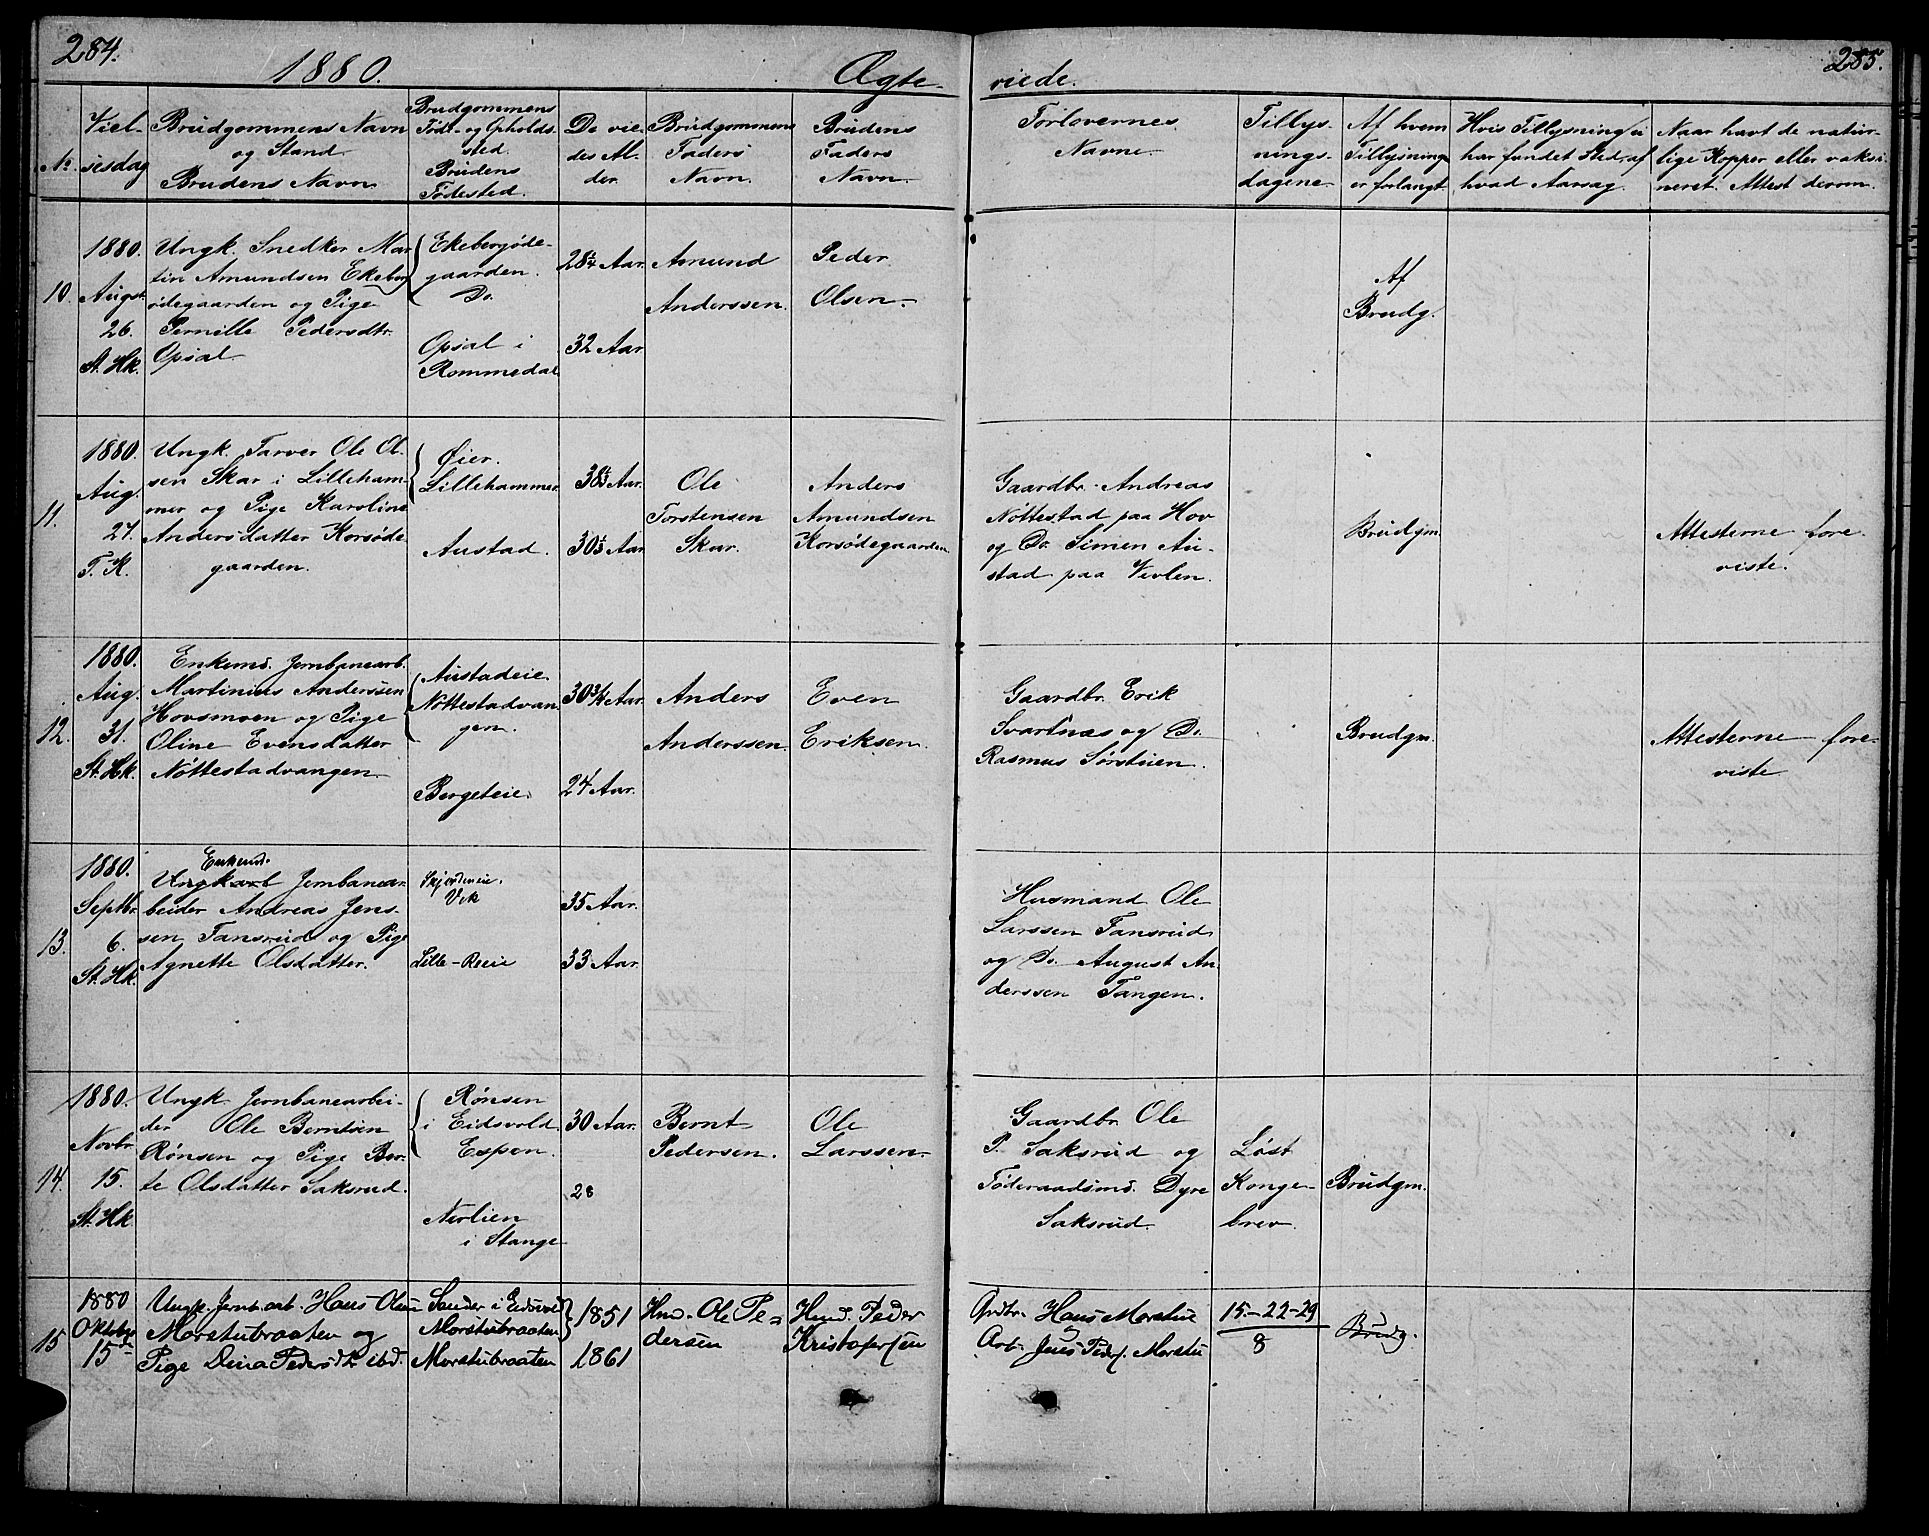 284.
1880.
Ægte-
viede.
285.
No.
Viel-
sesdag
Brudgommens Navn
og Stand.
Brudens Navn
Brudgommens
Födt- og Opholds-
sted.
Brudens
Födested.
De vie-
des Al-
der.
Brudgommens
Faders
Navn.
Brudens
Faders
Navn.
Forlovernes
Navne.
Tillys-
nings-
dagene.
Af hvem
Tillysning
er forlangt.
Hvis Tillysning ei
har fundet Sted, af
hvad Aarsag.
Naar havt de natur-
lige Kopper eller vaksi-
neret. Attest derom.
10.
1880.
Augst.
26.
St. Hk.
Ungk. Snedker Mar-
tin Amundsen Ekeberg
ödegaarden og Pige
Pernille Pedersdtr.
Opsal.
Ekebergöde-
gaarden.
Do.
Opsal i
Rommedal
28¼ Aar.
32 Aar.
Amund
Anderssen.
Peder
Olsen.
Af
Brudg.
11.
1880.
Aug.
27.
T. K.
Ungk. Farver Ole Ol-
sen Skar i Lilleham-
mer og Pige Karoline
Andersdatter Korsöde-
gaarden.
Øier.
Lillehammer.
Austad.
38½ Aar.
30½ Aar.
Ole
Torstensen
Skar.
Anders
Amundsen
Korsödegaarden
Gaardbr. Andreas
Nöttestad paa Hov
og Do. Simen Au-
stad paa Vevlen.
Brudgm.
Attesterne fore-
viste.
12.
1880.
Aug.
31.
St. Hk.
Enkemd. Jernbanearb.
Martinius Anderssen
Hovsmoen og Pige
Oline Evensdatter
Nöttestadvangen
Austadeie
Nöttestadvan-
gen.
Bergeteie.
30¾ Aar.
24 Aar.
Anders
Anderssen.
Even
Eriksen.
Gaardbr. Erik
Svartnæs og Do.
Rasmus Sørstuen.
Brudgm.
Attesterne fore-
viste
13.
1880.
Septbr.
6.
St. Hk.
Enkemd.
Jernbanear-
beider Andreas Jens-
sen Tansrud og Pige
Agnette Olsdatter.
Vik
Lille-Reeie
35 Aar.
33 Aar.
Husmand Ole
Larssen Tansrud
og Do. August An-
derssen Tangen.
14.
1880.
Novbr.
15.
St. Hk
Ungk. Jernbanearbei-
der Ole Berntsen
Rönsen og Pige Ber-
te Olsdatter Saksrud.
Rönsen
i Eidsvold
Espen.
Nerlien
i Stange
30 Aar.
28
Bernt
Pedersen.
Ole
Larssen.
Gaardbr. Ole
P. Saksrud og
Föderaadsmd. Dyre
Saksrud
Löst
Konge-
brev.
Brudgm.
15
1880
Oktober
15
Ungk. Jernb.arb. Hans Olsen
Morstubraaten og
Pige Dina Pedersdtr. ibd.
Sander i Eidsvold
Morstubraaten
Morstubraaten
1851
1861
Hmd. Ole Pe-
dersen
Hmd. Peder
Kristofersen
Grdbr. Hans Morstue
Arb. Jens Peders. Morstu
15-22-29
8
Brudg.